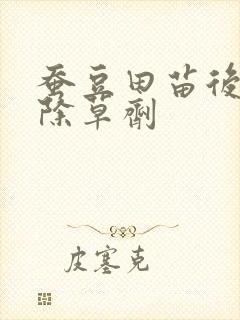 蚕豆田苗後
除草劑
皮塞克